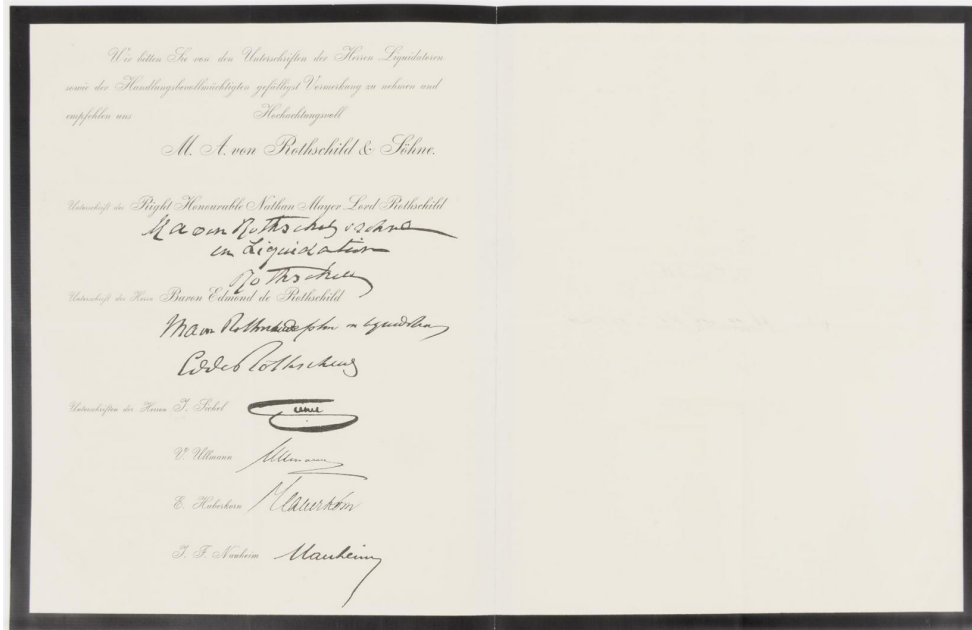 Wir bitten Sie von den Unterschriften der Herren Liquidatoren
sowie der Handlungsbevollmächtigten gefälligst Vormerkung zu nehmen und
empfehlen uns Hochachtungsvoll
M. A. von Rothschild & Söhne.
Unterschrift des Right Honourable Nathan Mayer Lord Rothschild
M A von Rothschild & Söhne
in Liquidation
Rothschild
Unterschrift des Herrn Baron Edmond de Rothschild
M A von Rothschild Söhne in Liquidation
E de Rothschild
Unterschriften der Herren J. Sichel
V. Ullmann Ullmann
E. Haberkorn Haberkorn
J. F. Nauheim Nauheim